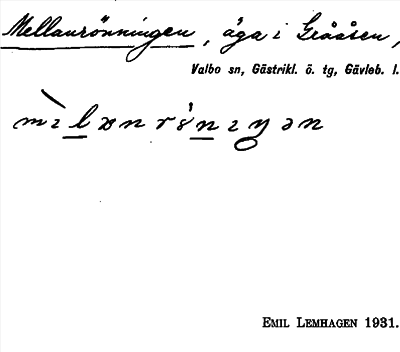 Mellanrönningen, äga i Grååsen,
Valbo sn, Gästrikl. ö. tg, Gävleb. l.
EMIL LEMHAGEN 1931.